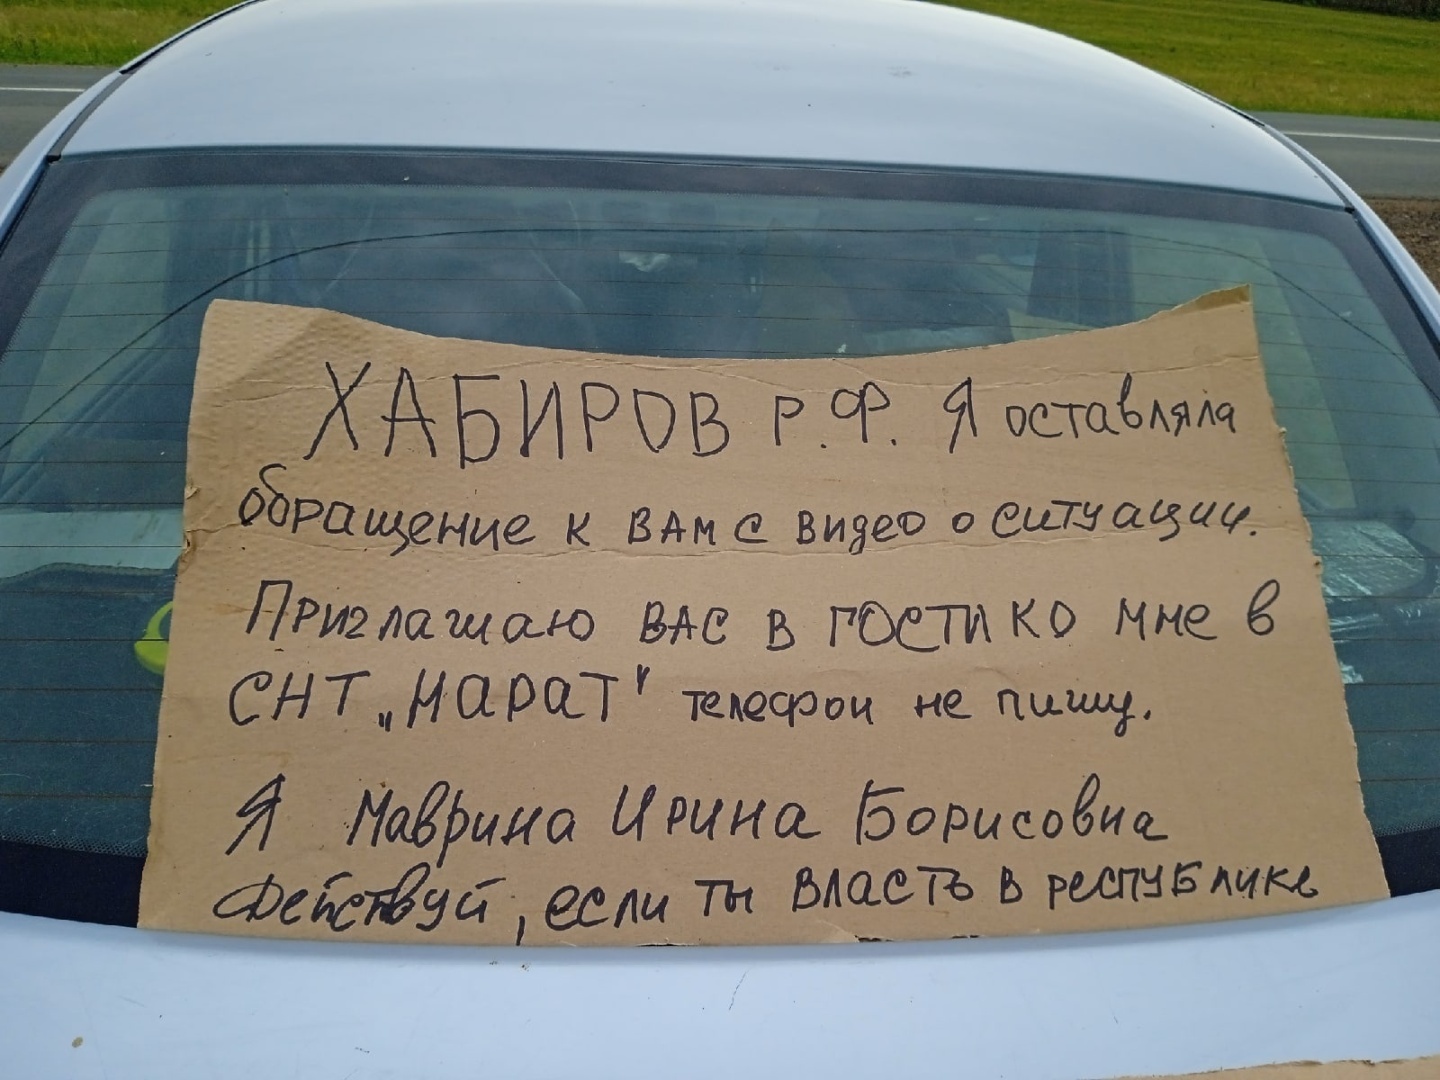 ХАБИРОВ Р.Ф. Я оставляла
обращение к ВАМ с видео о ситуации.
Приглашаю ВАС в ГОСТИ КО мне в
СНТ „МАРАТ" телефон не пишу.
Я Маврина Ирина Борисовна
Действуй, если ты власть в республике